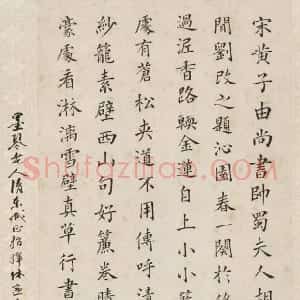 宋黄子由尚書帥蜀夫人胡
閒劉改之題沁園春一闋於
過泥香路輭金蓮自上小小
處有蒼松夾道不用傳呼清
紗籠素壁西山句好簾卷晴
豪處看淋漓雪壁真草行書
墨琴女人
Shufazilian.com